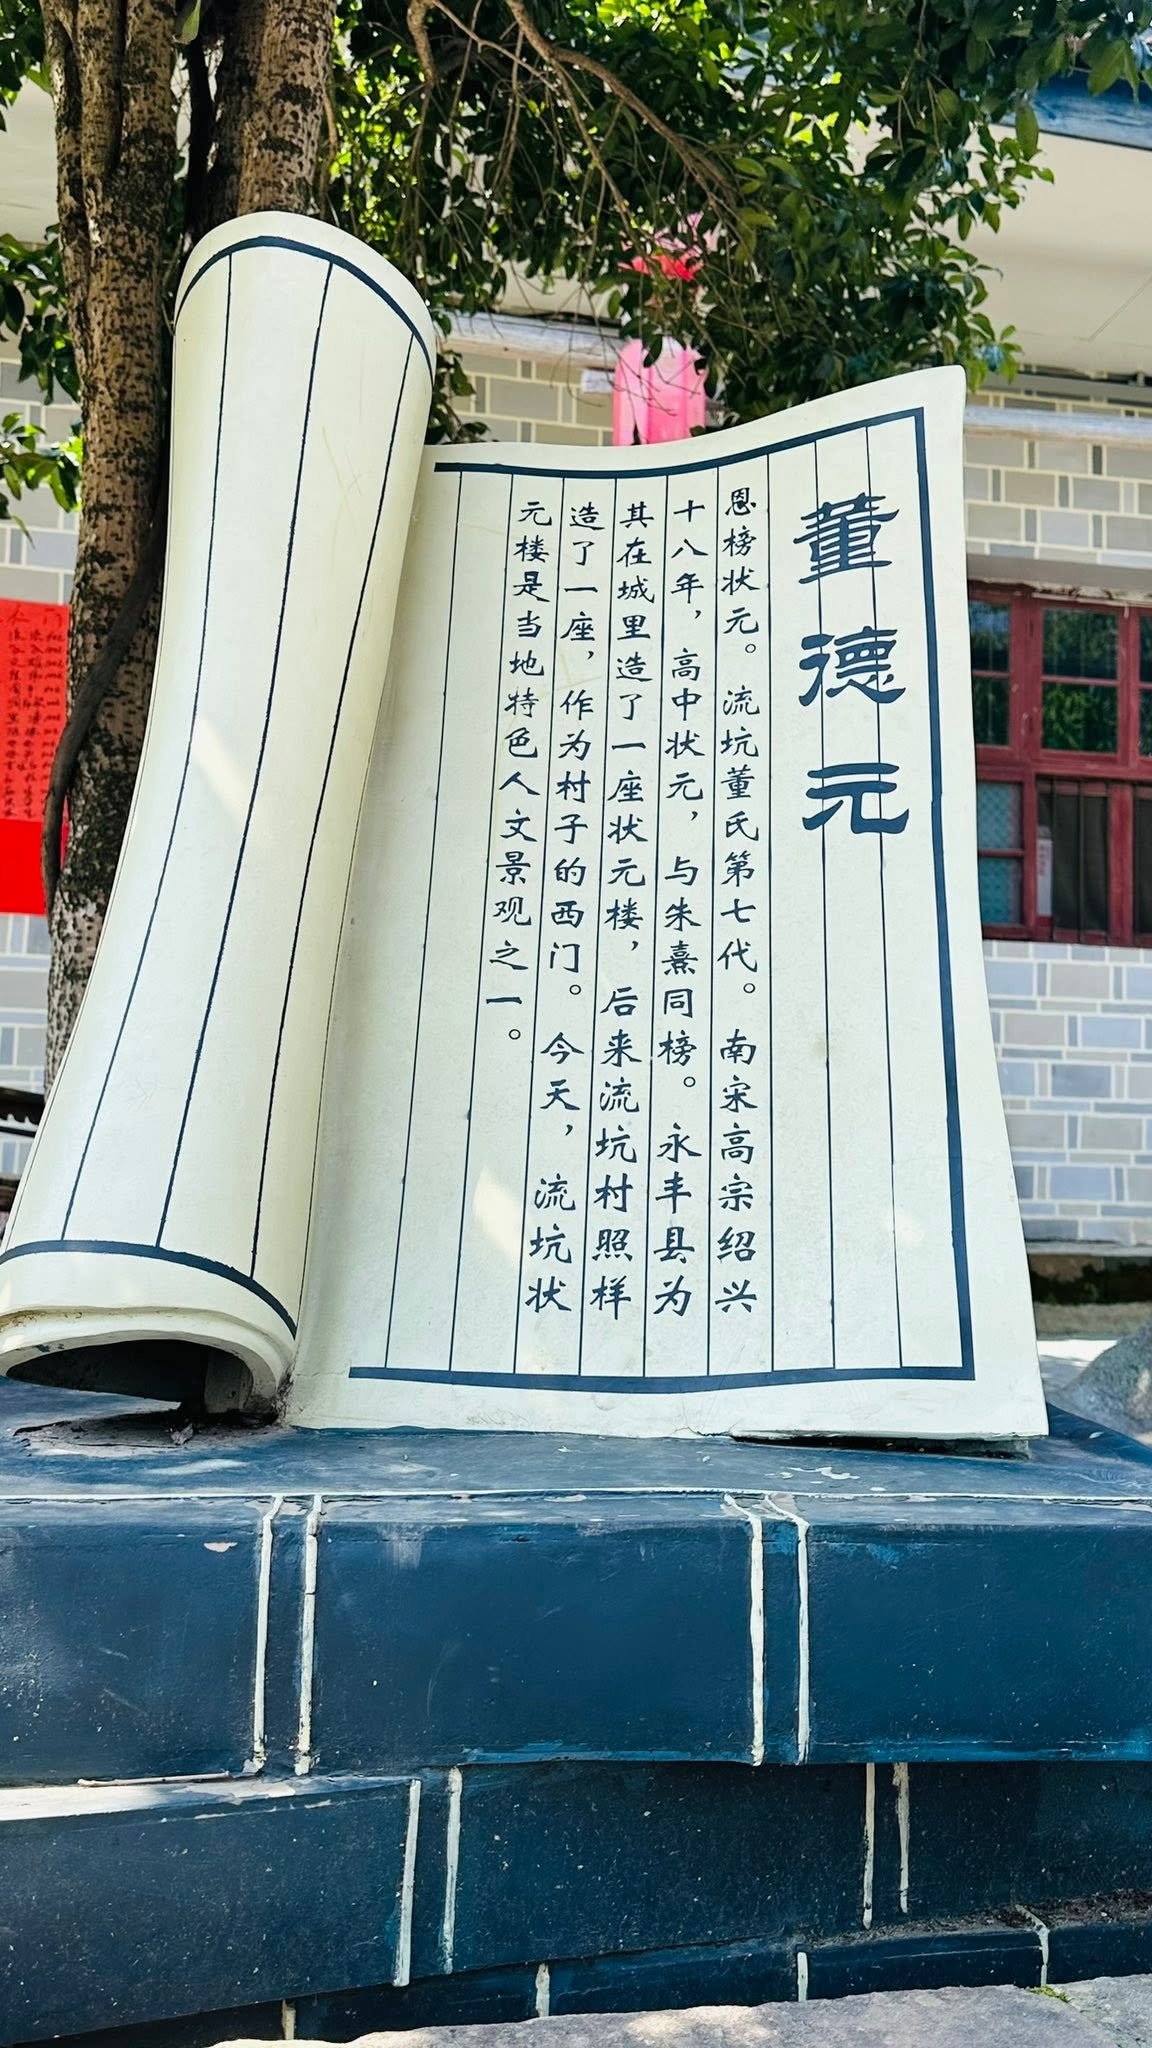 董德元
恩榜状元。流坑董氏第七代。南宋高宗绍兴
十八年，高中状元，与朱熹同榜。永丰县为
其在城里造了一座状元楼，后来流坑村照样
造了一座，作为村子的西门。今天，流坑状
元楼是当地特色人文景观之一。